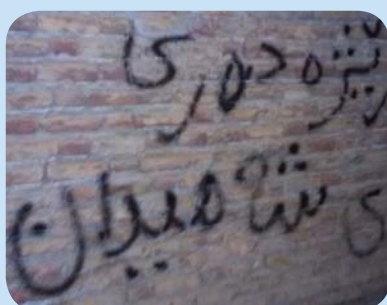 رێژه دهری
ی شه هیدان